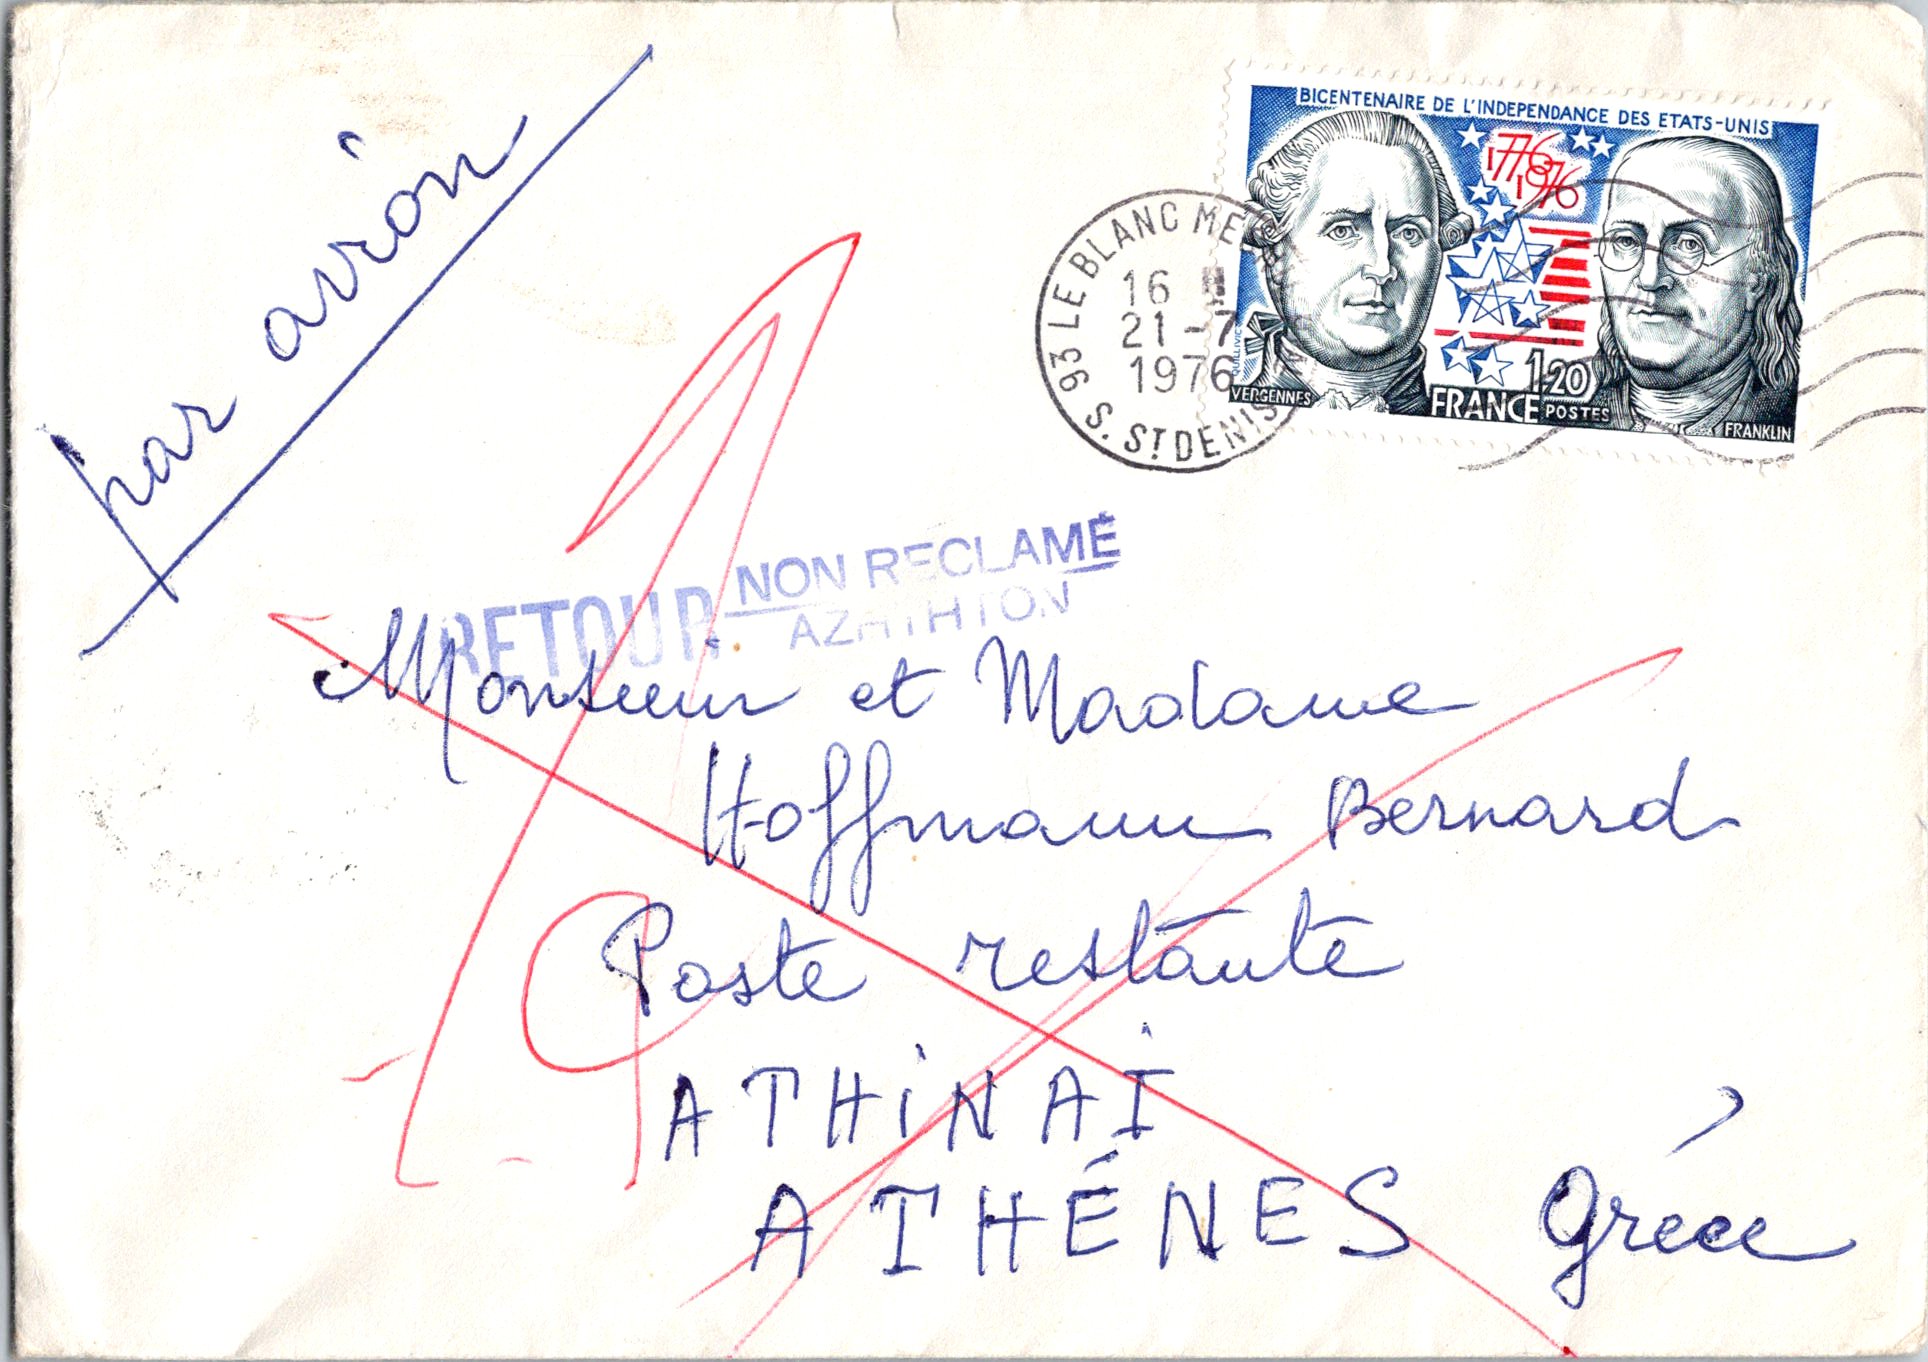 par avion
BICENTENAIRE DE L'INDEPENDANCE DES ETATS-UNIS
1776
1976
1,20
VERGENNES
FRANCE POSTES
FRANKLIN
QUILLIVIC
93 LE BLANC ME
16 H
21-7
1976
S. ST DENIS
RETOUR
NON RECLAMÉ
AZHTHTON
Monsieur et Madame
Hoffmann Bernard
Poste restante
ATHiNAI
ATHÉNES Grèce